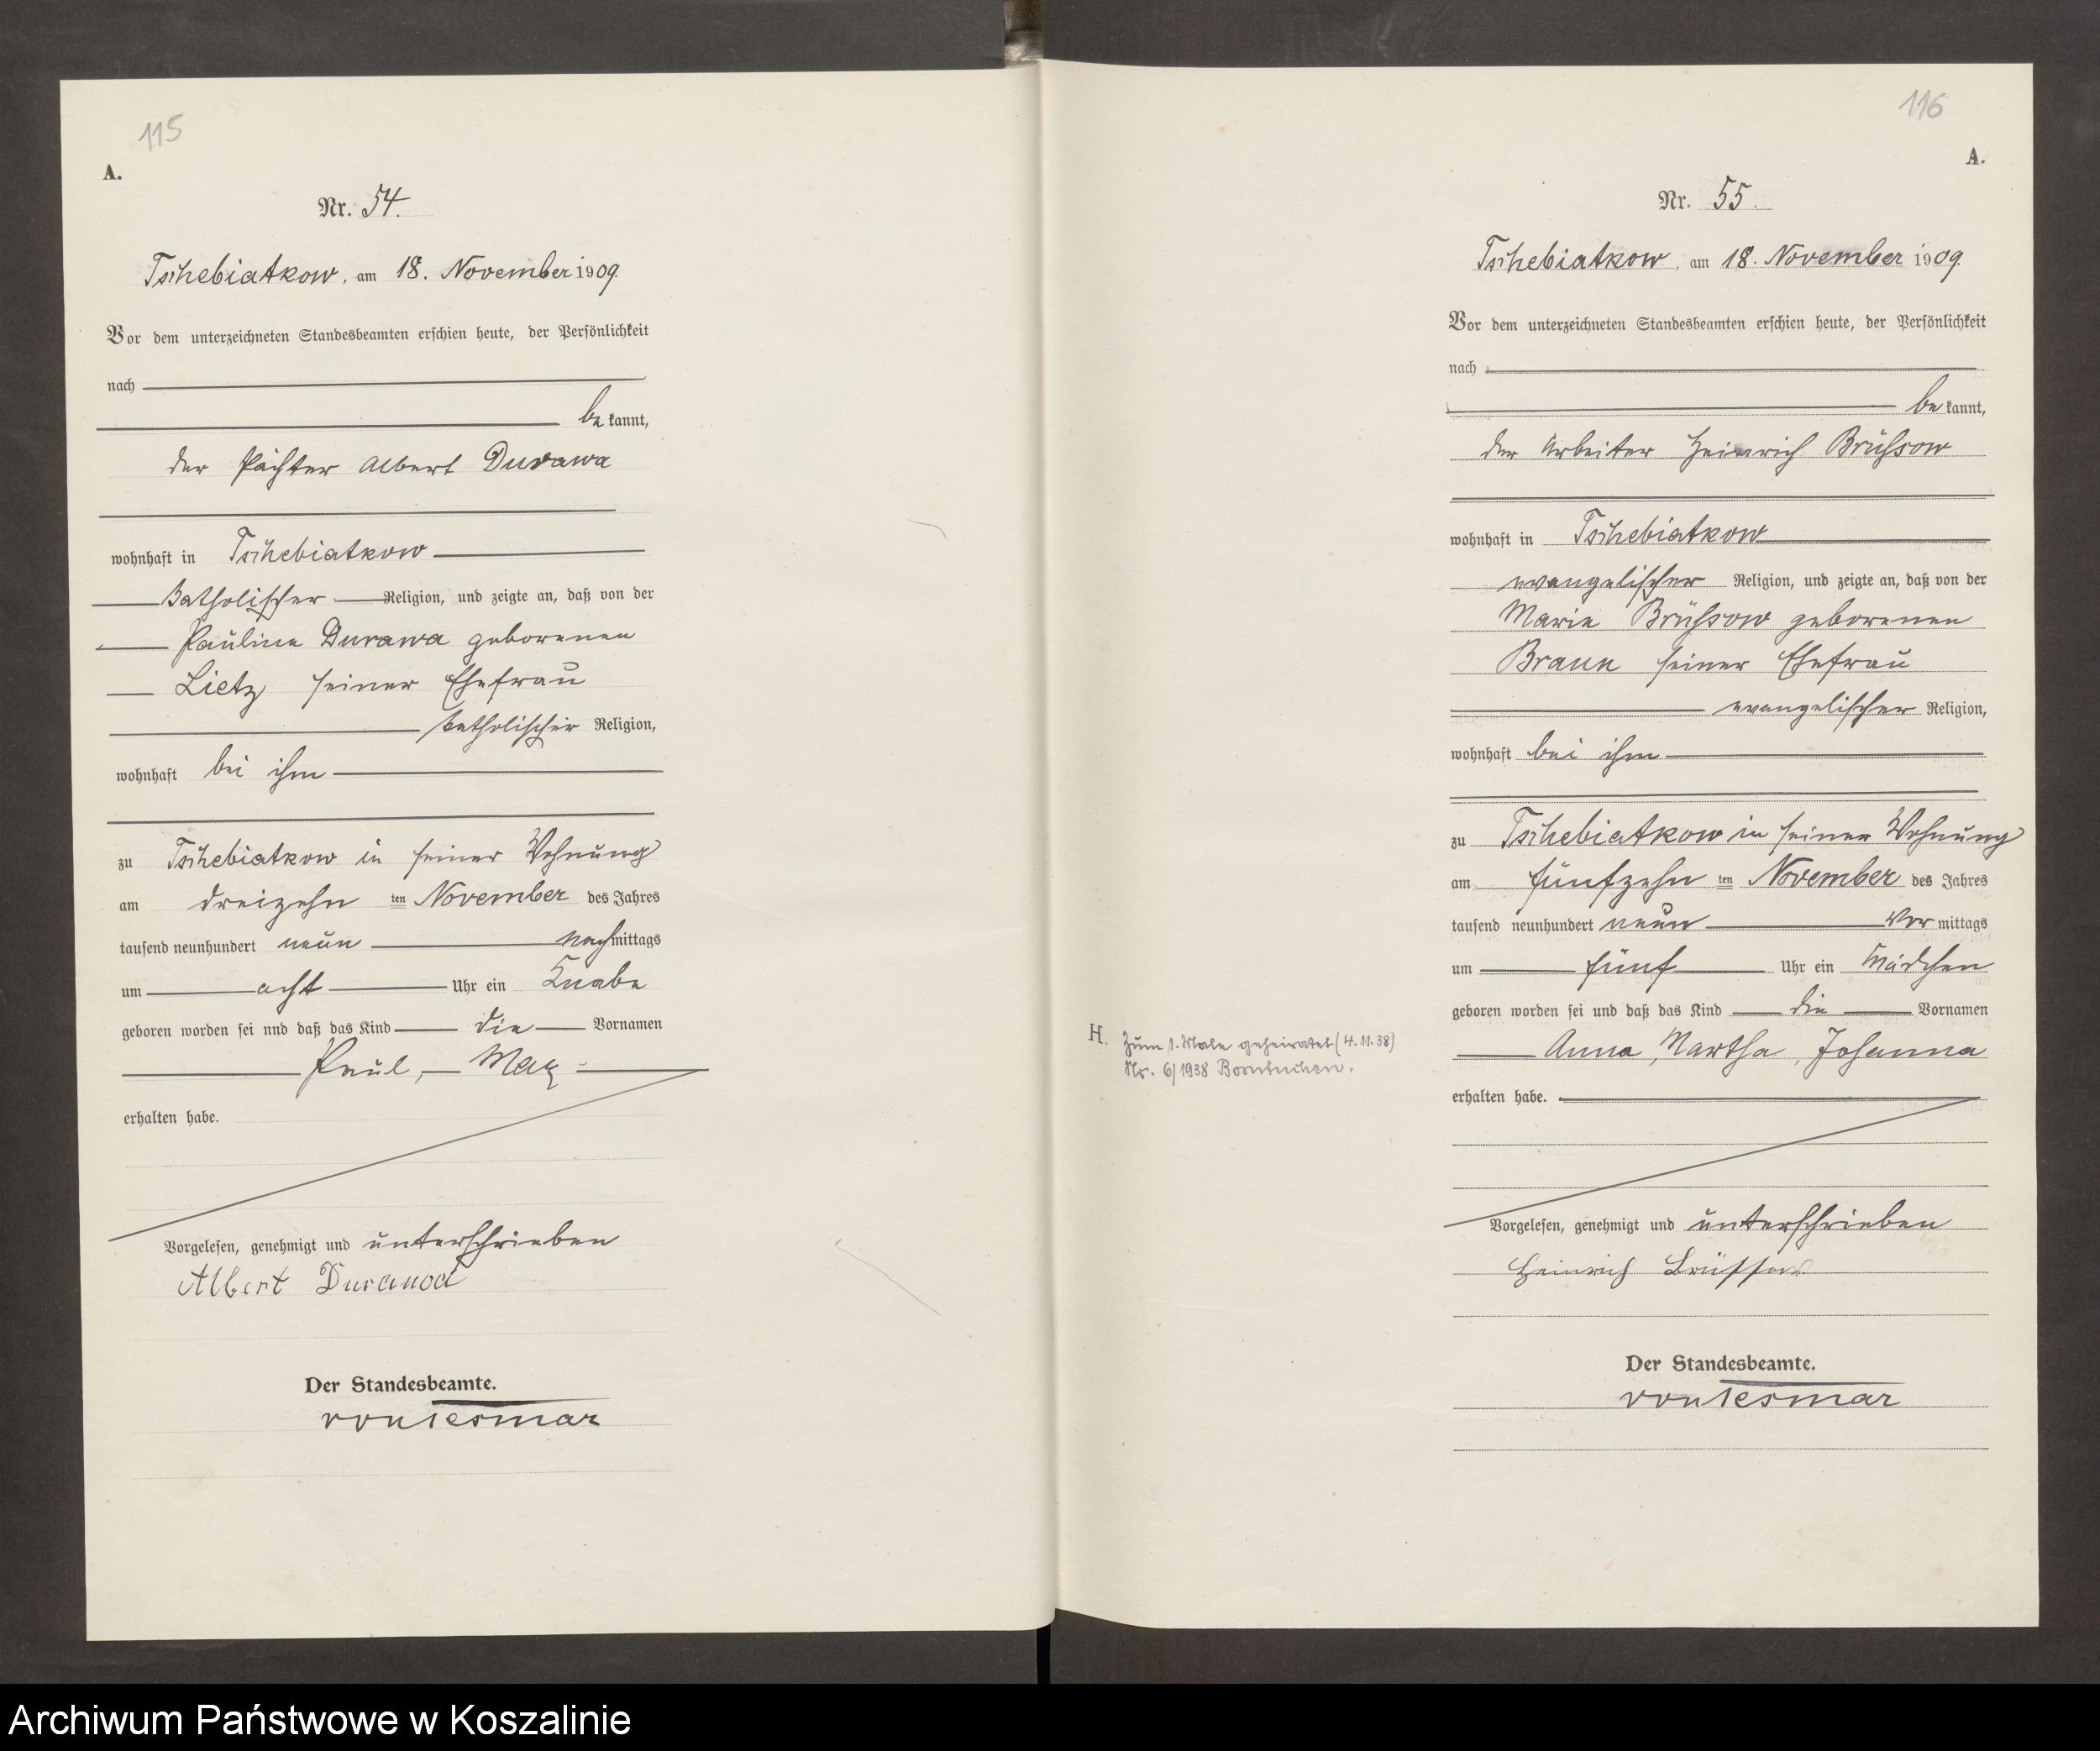 115
A.
Nr. 54.
Tschebiatkow, am 18. November 1909.
Vor dem unterzeichneten Standesbeamten erschien heute, der Persönlichkeit
nach
be kannt,
der Pächter Albert Durawa
wohnhaft in Tschebiatkow
katholischer Religion, und zeigte an, daß von der
Pauline Durawa geborenen
Lietz seiner Ehefrau
katholischer Religion,
wohnhaft bei ihm
zu Tschebiatkow in seiner Wohnung
am dreizehn ten November des Jahres
tausend neunhundert neun nachmittags
um acht Uhr ein Knabe
geboren worden sei nnd daß das Kind die Vornamen
Paul, Max
erhalten habe.
Vorgelesen, genehmigt und unterschrieben
Albert
Der Standesbeamte.
116
A.
Nr. 55.
Tschebiatkow, am 18. November 1909.
Vor dem unterzeichneten Standesbeamten erschien heute, der Persönlichkeit
nach
be kannt,
der Arbeiter Heinrich Brühsow
wohnhaft in Tschebiatkow
evangelischer Religion, und zeigte an, daß von der
Marie Brühsow geborenen
Braun seiner Ehefrau
evangelischer Religion,
wohnhaft bei ihm
zu Tschebiatkow in seiner Wohnung
am fünfzehn ten November des Jahres
tausend neunhundert neun Vor mittags
um fünf Uhr ein Mädchen
geboren worden sei und daß das Kind die Vornamen
Anna, Martha, Johanna
erhalten habe.
Vorgelesen, genehmigt und unterschrieben
Heinrich Brüssow
Der Standesbeamte.
H. Zum 1. Male geheiratet (4.11.38)
Nr. 6/1938 Borntuchen.
Archiwum Państwowe w Koszalinie